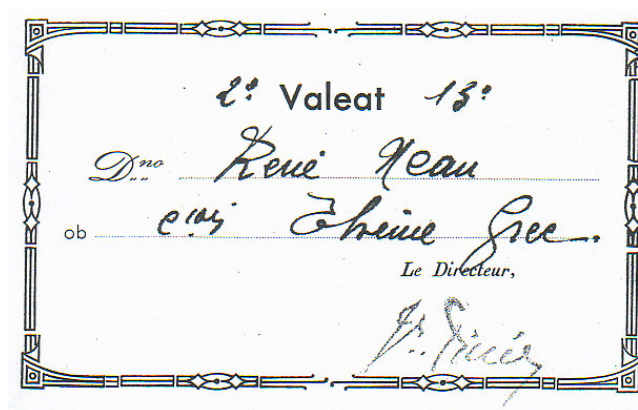 2º Valeat 13º
Dno René Neau
ob Thème Grec
Le Directeur,